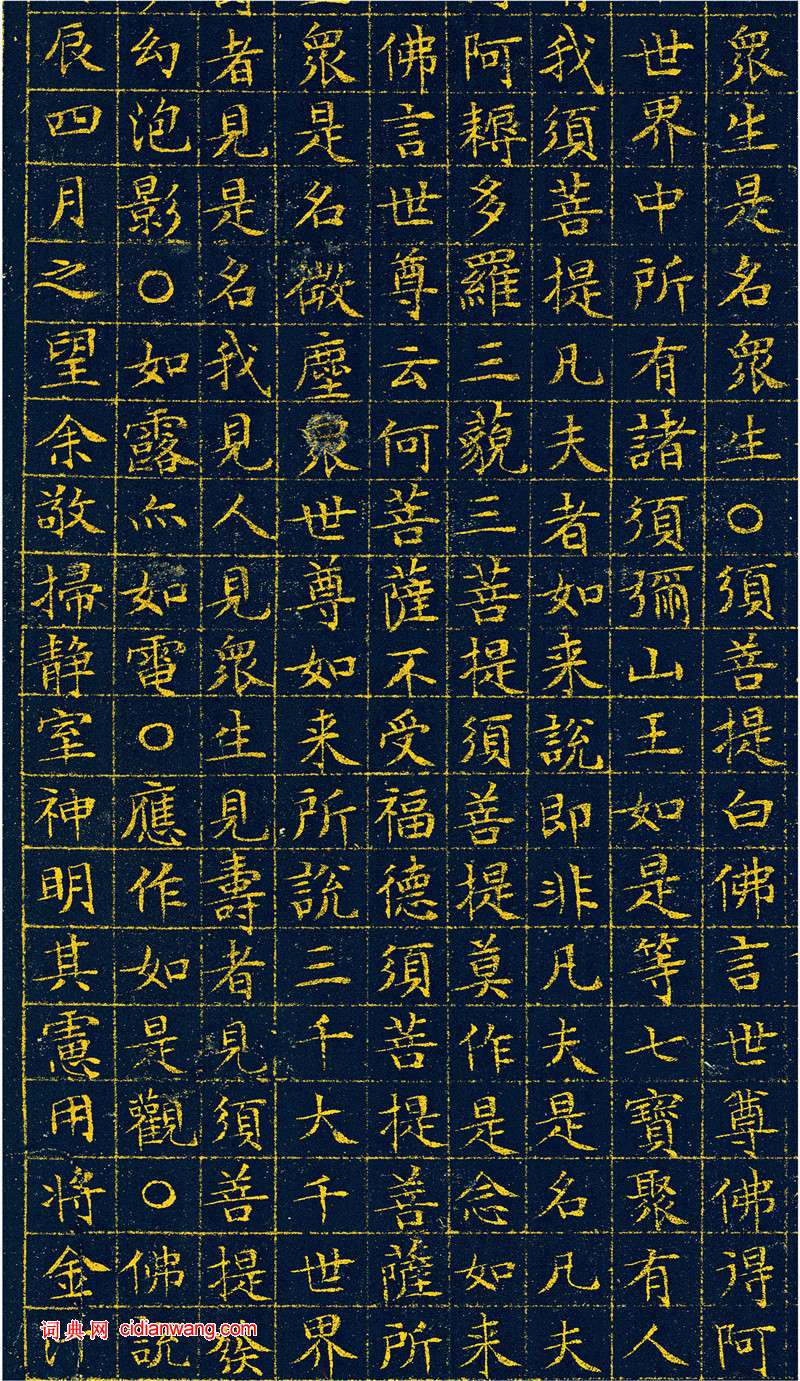 眾生是名眾生○須菩提白佛言世尊佛得阿
世界中所有諸須彌山王如是等七寶聚有人
我須菩提凡夫者如来說即非凡夫是名凡夫
阿耨多羅三藐三菩提須菩提莫作是念如来
佛言世尊云何菩薩不受福德須菩提菩薩所
眾是名微塵眾世尊如来所說三千大千世界
者見是名我見人見眾生見壽者見須菩提發
幻泡影○如露亦如電○應作如是觀○佛說
辰四月之望余敬掃静室神明其慮用將金
词典网 cidianwang.com